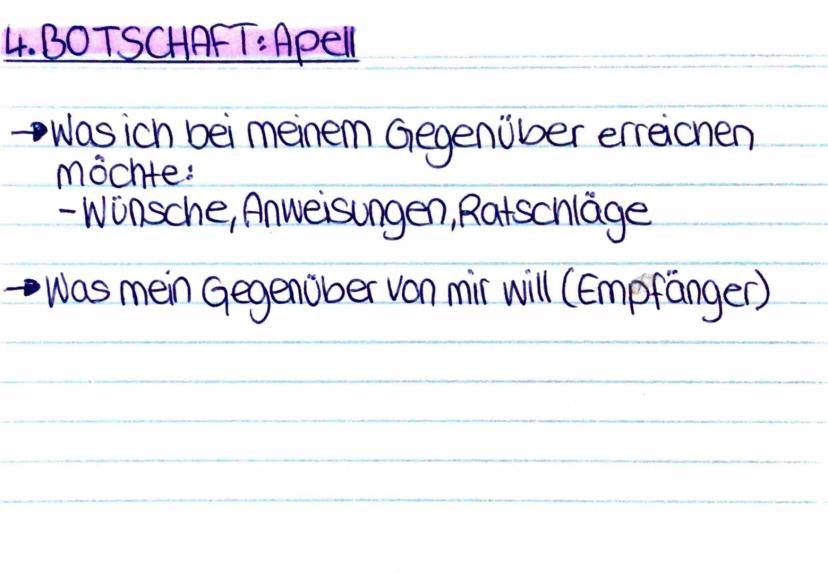 4. BOTSCHAFT: Apell
→ Was ich bei meinem Gegenüber erreichen
möchte:
- Wünsche, Anweisungen, Ratschläge
→ Was mein Gegenüber von mir will (Empfänger)